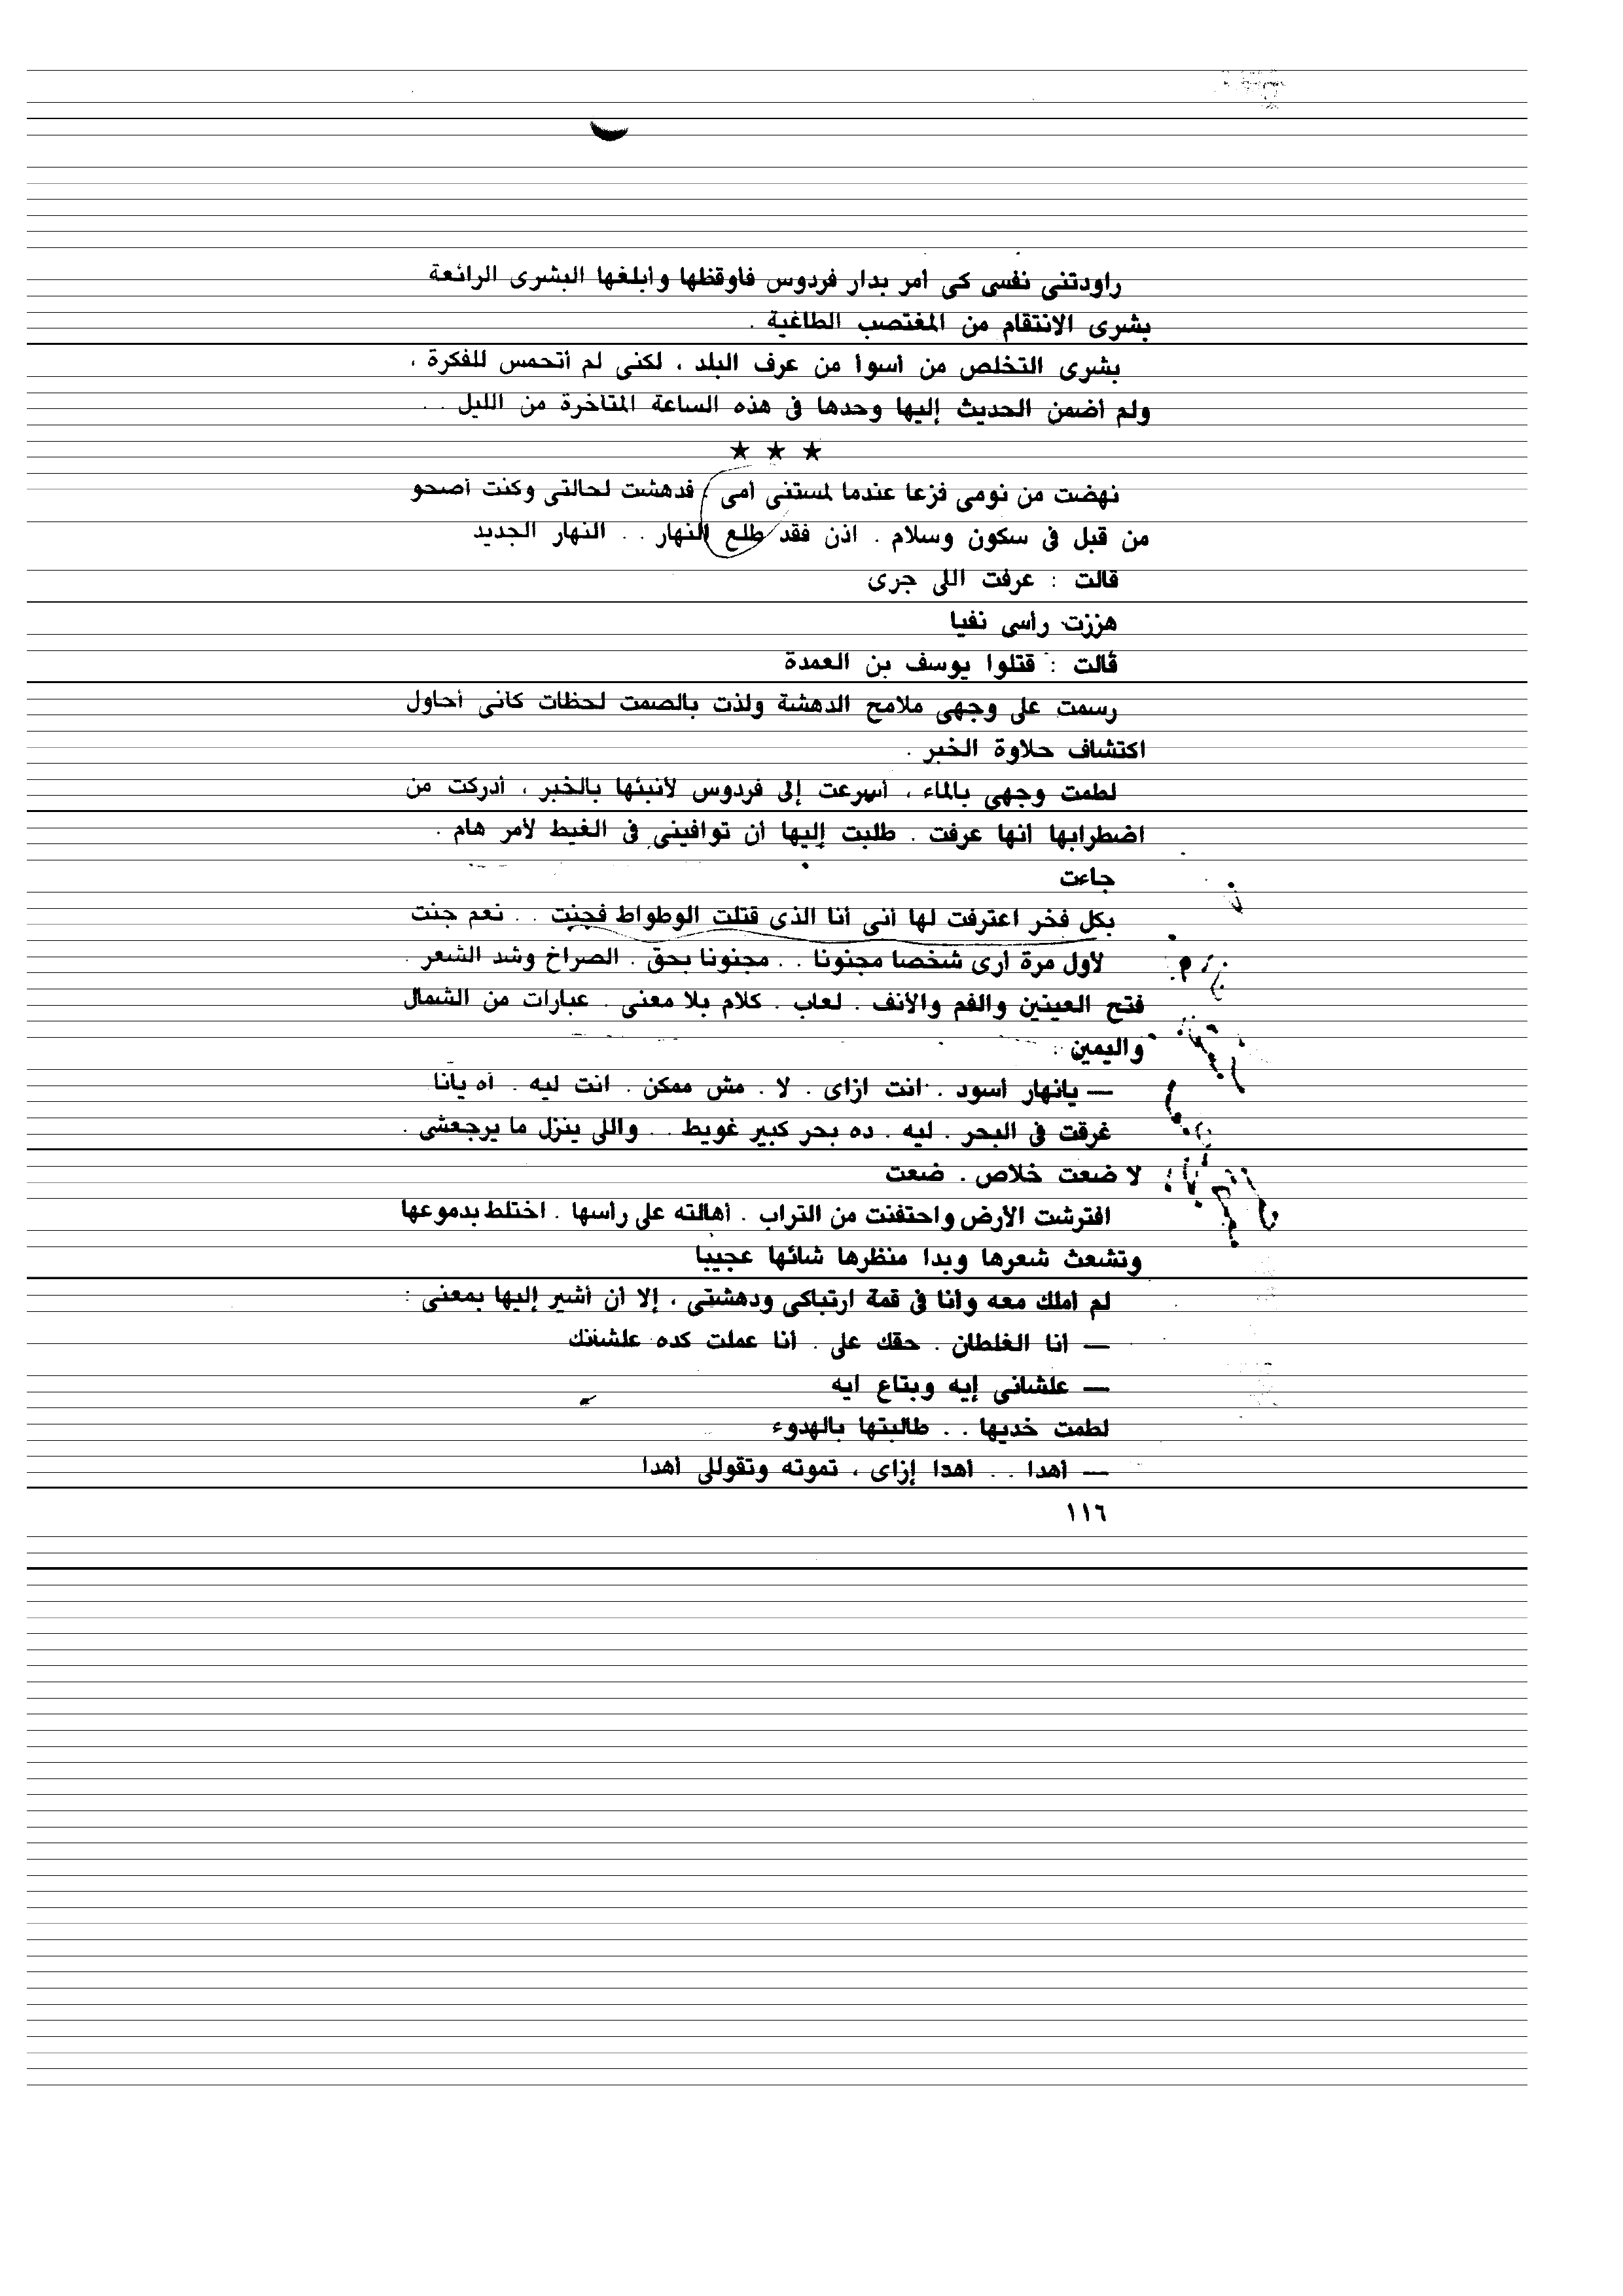 راودتنى نفسى كى أمر بدار فردوس فأوقظها وأبلغها البشرى الرائعة
بشرى الانتقام من المغتصب الطاغية .
بشرى التخلص من أسوأ من عرف البلد ، لكنى لم أتحمس للفكرة ،
ولم أضمن الحديث إليها وحدها فى هذه الساعة المتأخرة من الليل . .
★ ★ ★
نهضت من نومى فزعا عندما لمستنى أمى ، فدهشت لحالتى وكنت أصحو
من قبل فى سكون وسلام . اذن فقد طلع النهار . . النهار الجديد
قالت : عرفت اللى جرى
هززت رأسى نفيا
قالت : قتلوا يوسف بن العمدة
رسمت على وجهى ملامح الدهشة ولذت بالصمت لحظات كأنى أحاول
اكتشاف حلاوة الخبر .
لطمت وجهى بالماء ، أسرعت إلى فردوس لأنبئها بالخبر ، أدركت من
اضطرابها أنها عرفت . طلبت إليها أن توافينى فى الغيط لأمر هام .
جاءت
بكل فخر اعترفت لها أنى أنا الذى قتلت الوطواط فجنت . . نعم جنت
لأول مرة أرى شخصا مجنونا . . مجنونا بحق . الصراخ وشد الشعر .
فتح العينين والفم والأنف . لعاب . كلام بلا معنى . عبارات من الشمال
واليمين .
— يانهار أسود . انت ازاى . لا . مش ممكن . انت ليه . أه يانا
غرقت فى البحر . ليه . ده بحر كبير غويط . . واللى ينزل ما يرجعشى .
لا ضعت خلاص . ضعت
افترشت الأرض واحتفنت من التراب . أهالته على رأسها . اختلط بدموعها
وتشعث شعرها وبدا منظرها شائها عجيبا
لم أملك معه وأنا فى قمة ارتباكى ودهشتى ، إلا أن أشير إليها بمعنى :
— أنا الغلطان . حقك على . أنا عملت كده علشانك
— علشانى إيه وبتاع ايه
لطمت خديها . . طالبتها بالهدوء
— أهدا . . أهدا إزاى ، تموته وتقوللى أهدا
١١٦